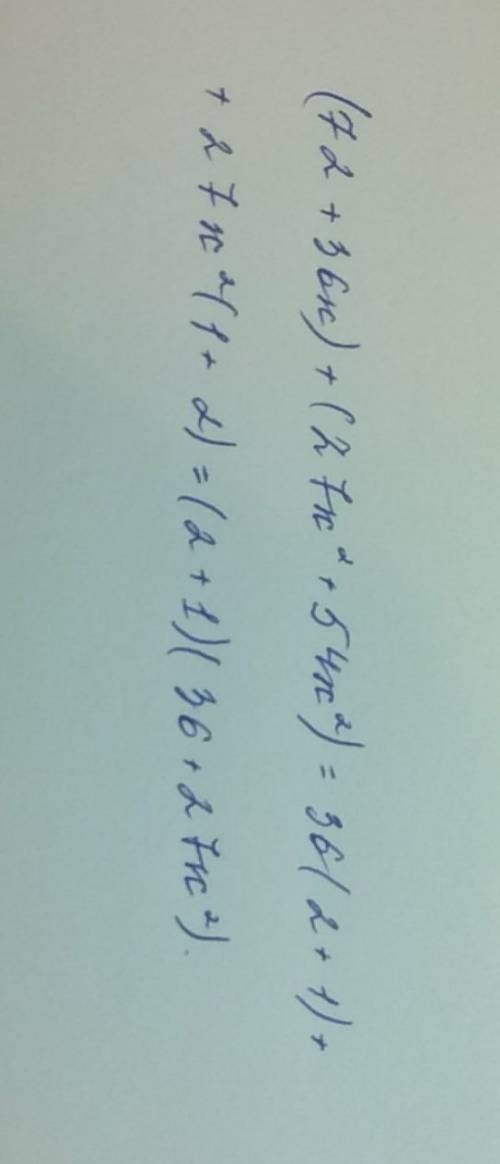 (72+36x)+(27x²+54x²)=36(2+1)+
+27x²(1+2)=(2+1)(36+27x²).